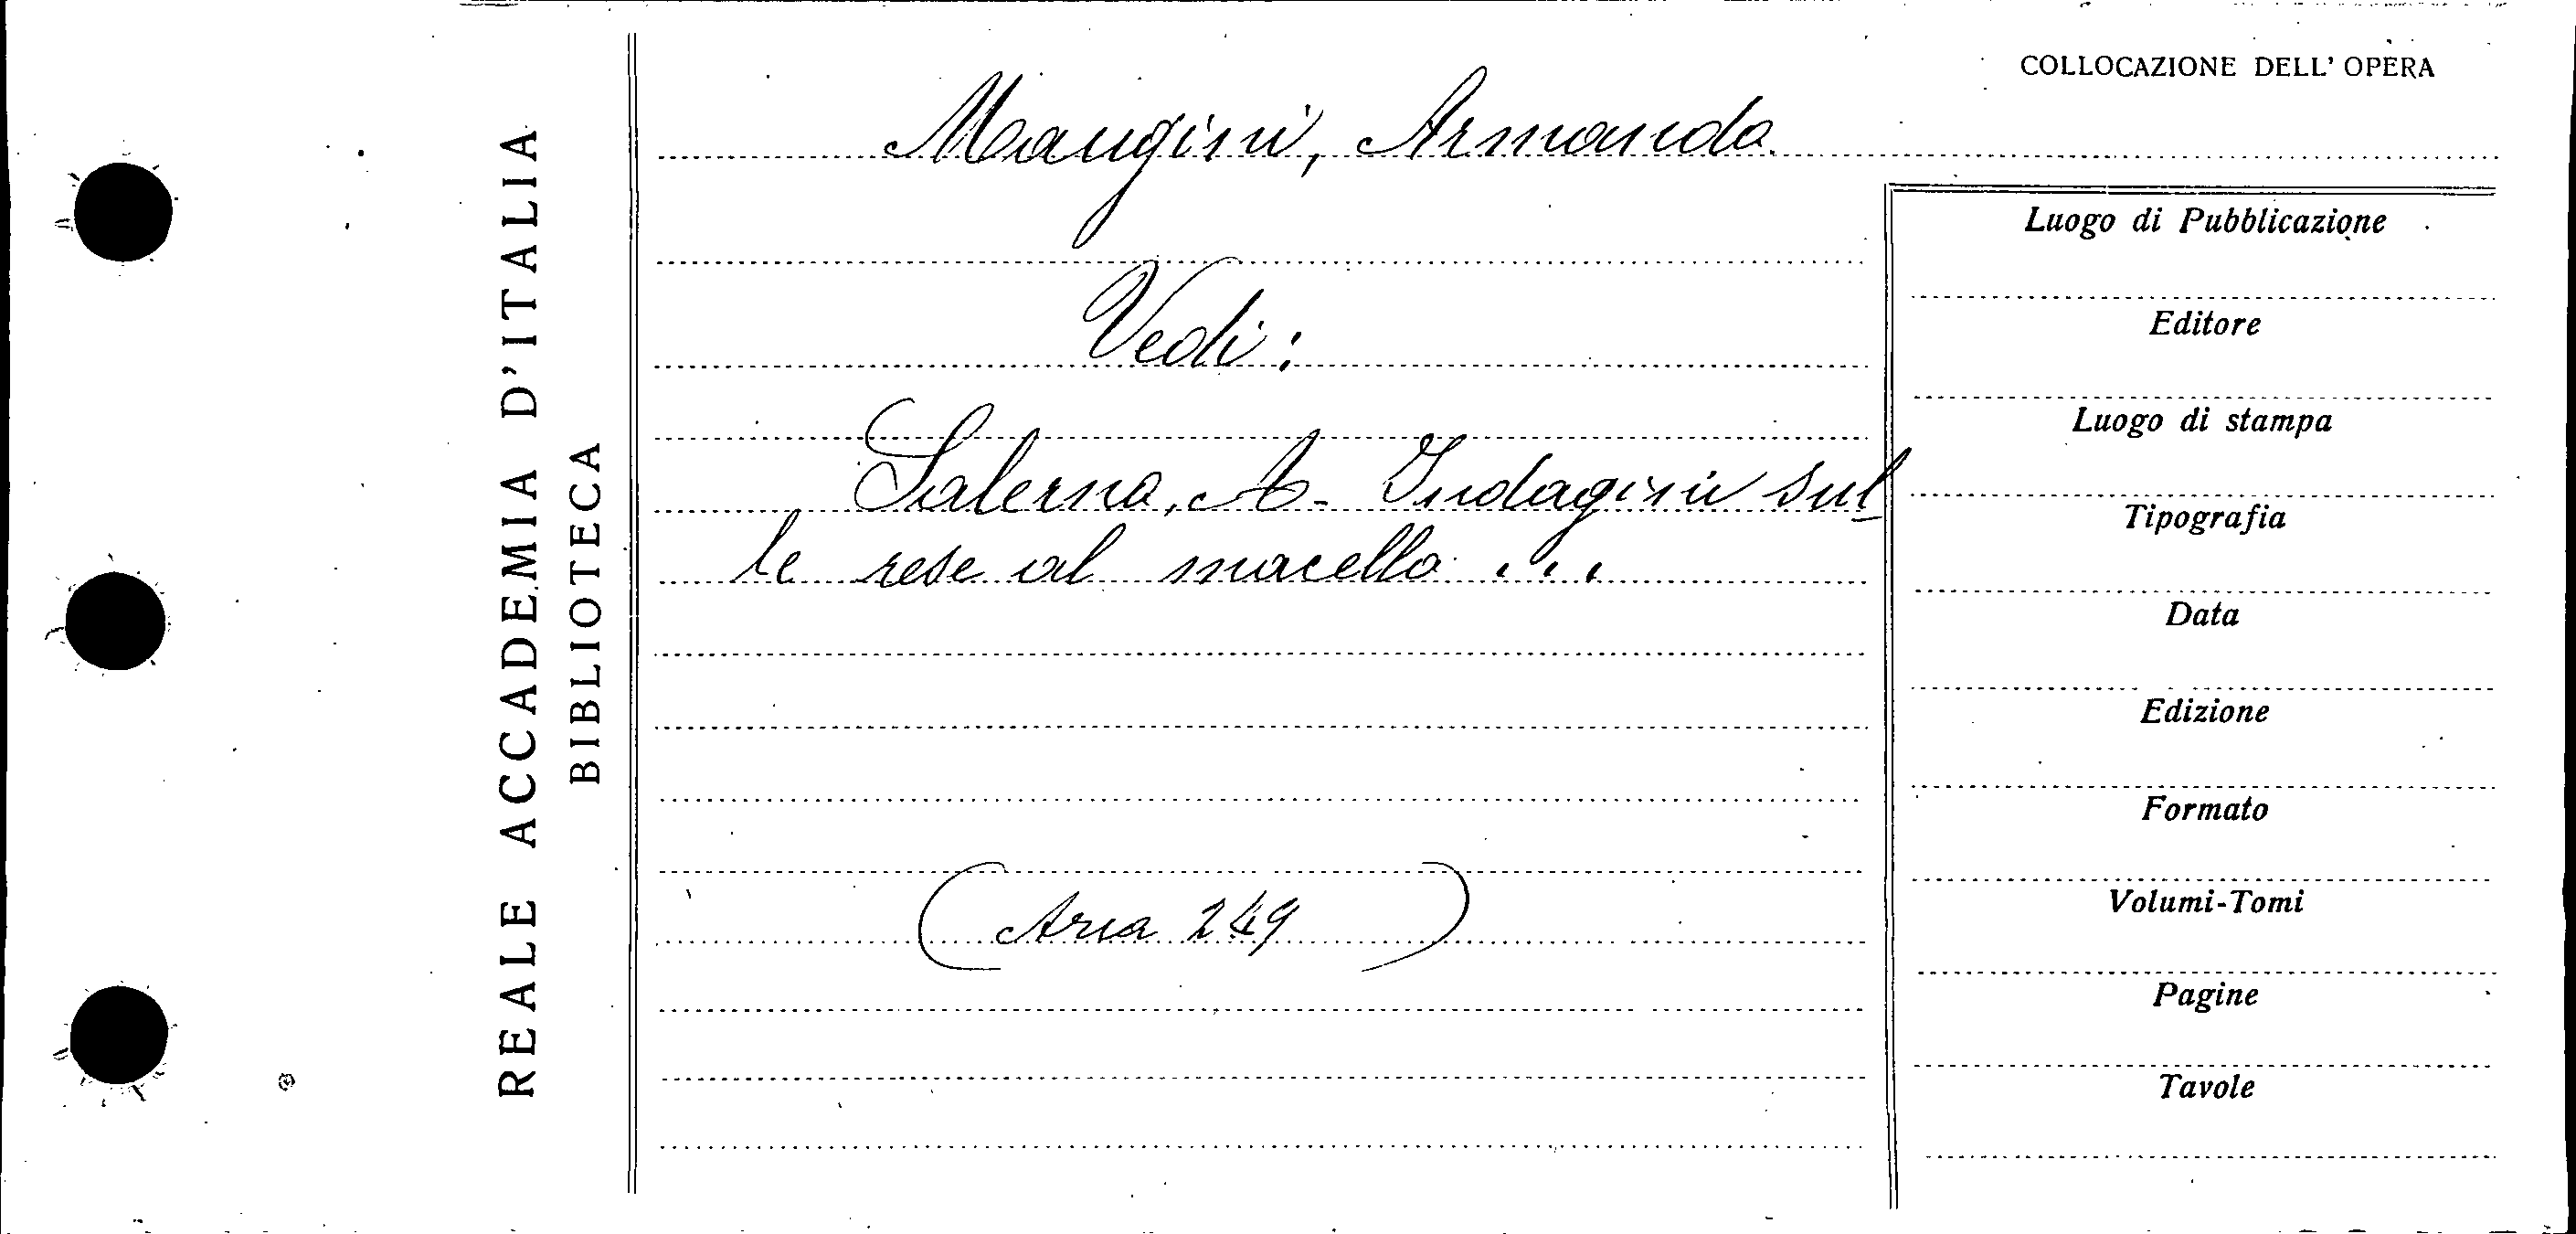 REALE ACCADEMIA D'ITALIA
BIBLIOTECA
COLLOCAZIONE DELL' OPERA
Mangini, Armando.
Vedi:
Salerno, A. - Indagini sul-
le rese al macello ...
(Aria 249)
Luogo di Pubblicazione
Editore
Luogo di stampa
Tipografia
Data
Edizione
Formato
Volumi-Tomi
Pagine
Tavole